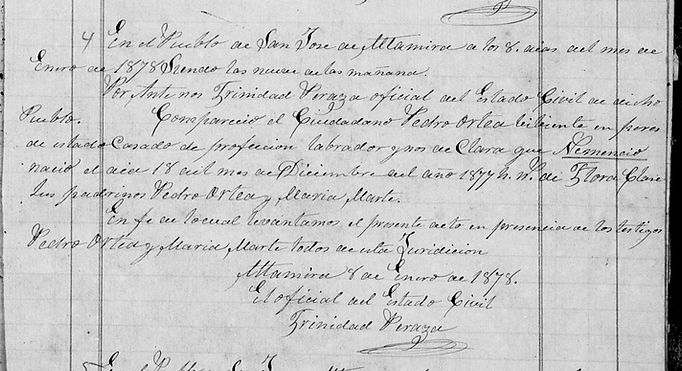 4 En el Pueblo de San Jose de Altamira a los 8. dias del mes de
Enero de 1878 Siendo las nueve de las mañana.
Por Ante nos Trinidad Peraza oficial del Estado Civil de dicho
Pueblo. Comparecio el Ciudadano Pedro Ortea en
de estado Casado de profecion labrador y nos de Clara que Nemencio
nacio el dia 18 del mes de Diciembre del año 1877 h. n. de Flora Clare
sus padrinos Pedro Ortea y Maria Marte.
En fe de lo cual levantamos el presente acto en presencia de los testigos
Pedro Ortea y Maria Marte todos de esta Juridicion
Altamira 8 de Enero de 1878.
El oficial del Estado Civil
Trinidad Peraza
5 En el